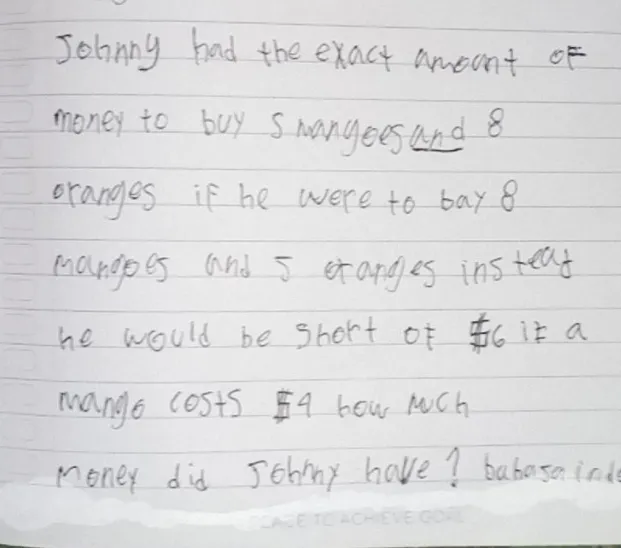 Johnny had the exact amount of
money to buy 5 mangoes and 8
oranges if he were to bay 8
mangoes and 5 oranges instead
he would be short of $6 if a
mango costs $4 how much
money did Johnny have? bahasa indo